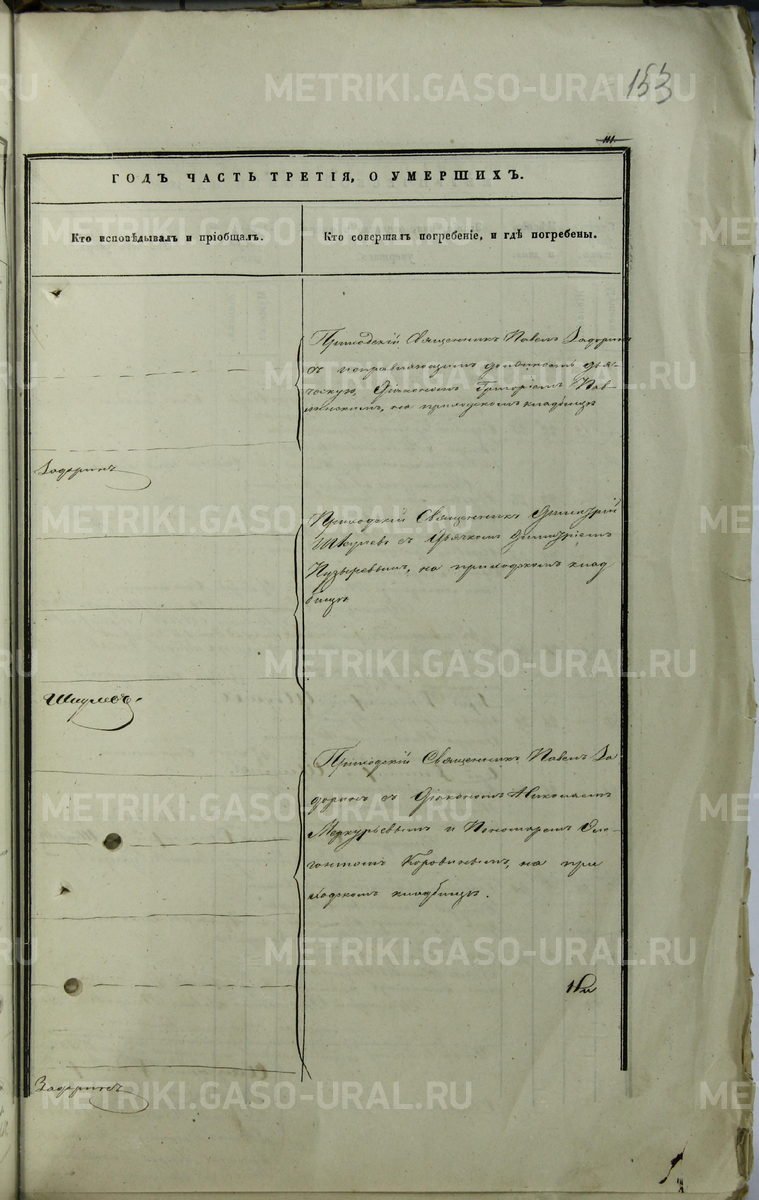 153
ГОДЪ ЧАСТЬ ТРЕТІЯ, О УМЕРШИХЪ.
Кто исповѣдывалъ и пріобщалъ.
Кто совершалъ погребеніе, и гдѣ погребены.
Приходскій Священникъ Павелъ Задоринъ
съ исправляющимъ должность дья-
ческую, Діакономъ Григоріемъ
на приходскомъ кладбищѣ
Задоринъ
Приходскій Священникъ Димитрій
Шкулевъ съ Дьячкомъ Димитріемъ
Пузыревымъ, на приходскомъ клад
бищѣ
Приходскій Священникъ Павелъ За
доринъ съ Діакономъ Николаемъ
Меркурьевымъ и Пономаремъ
Коровинымъ, на при
ходскомъ кладбищѣ.
Задоринъ
METRIKI.GASO-URAL.RU